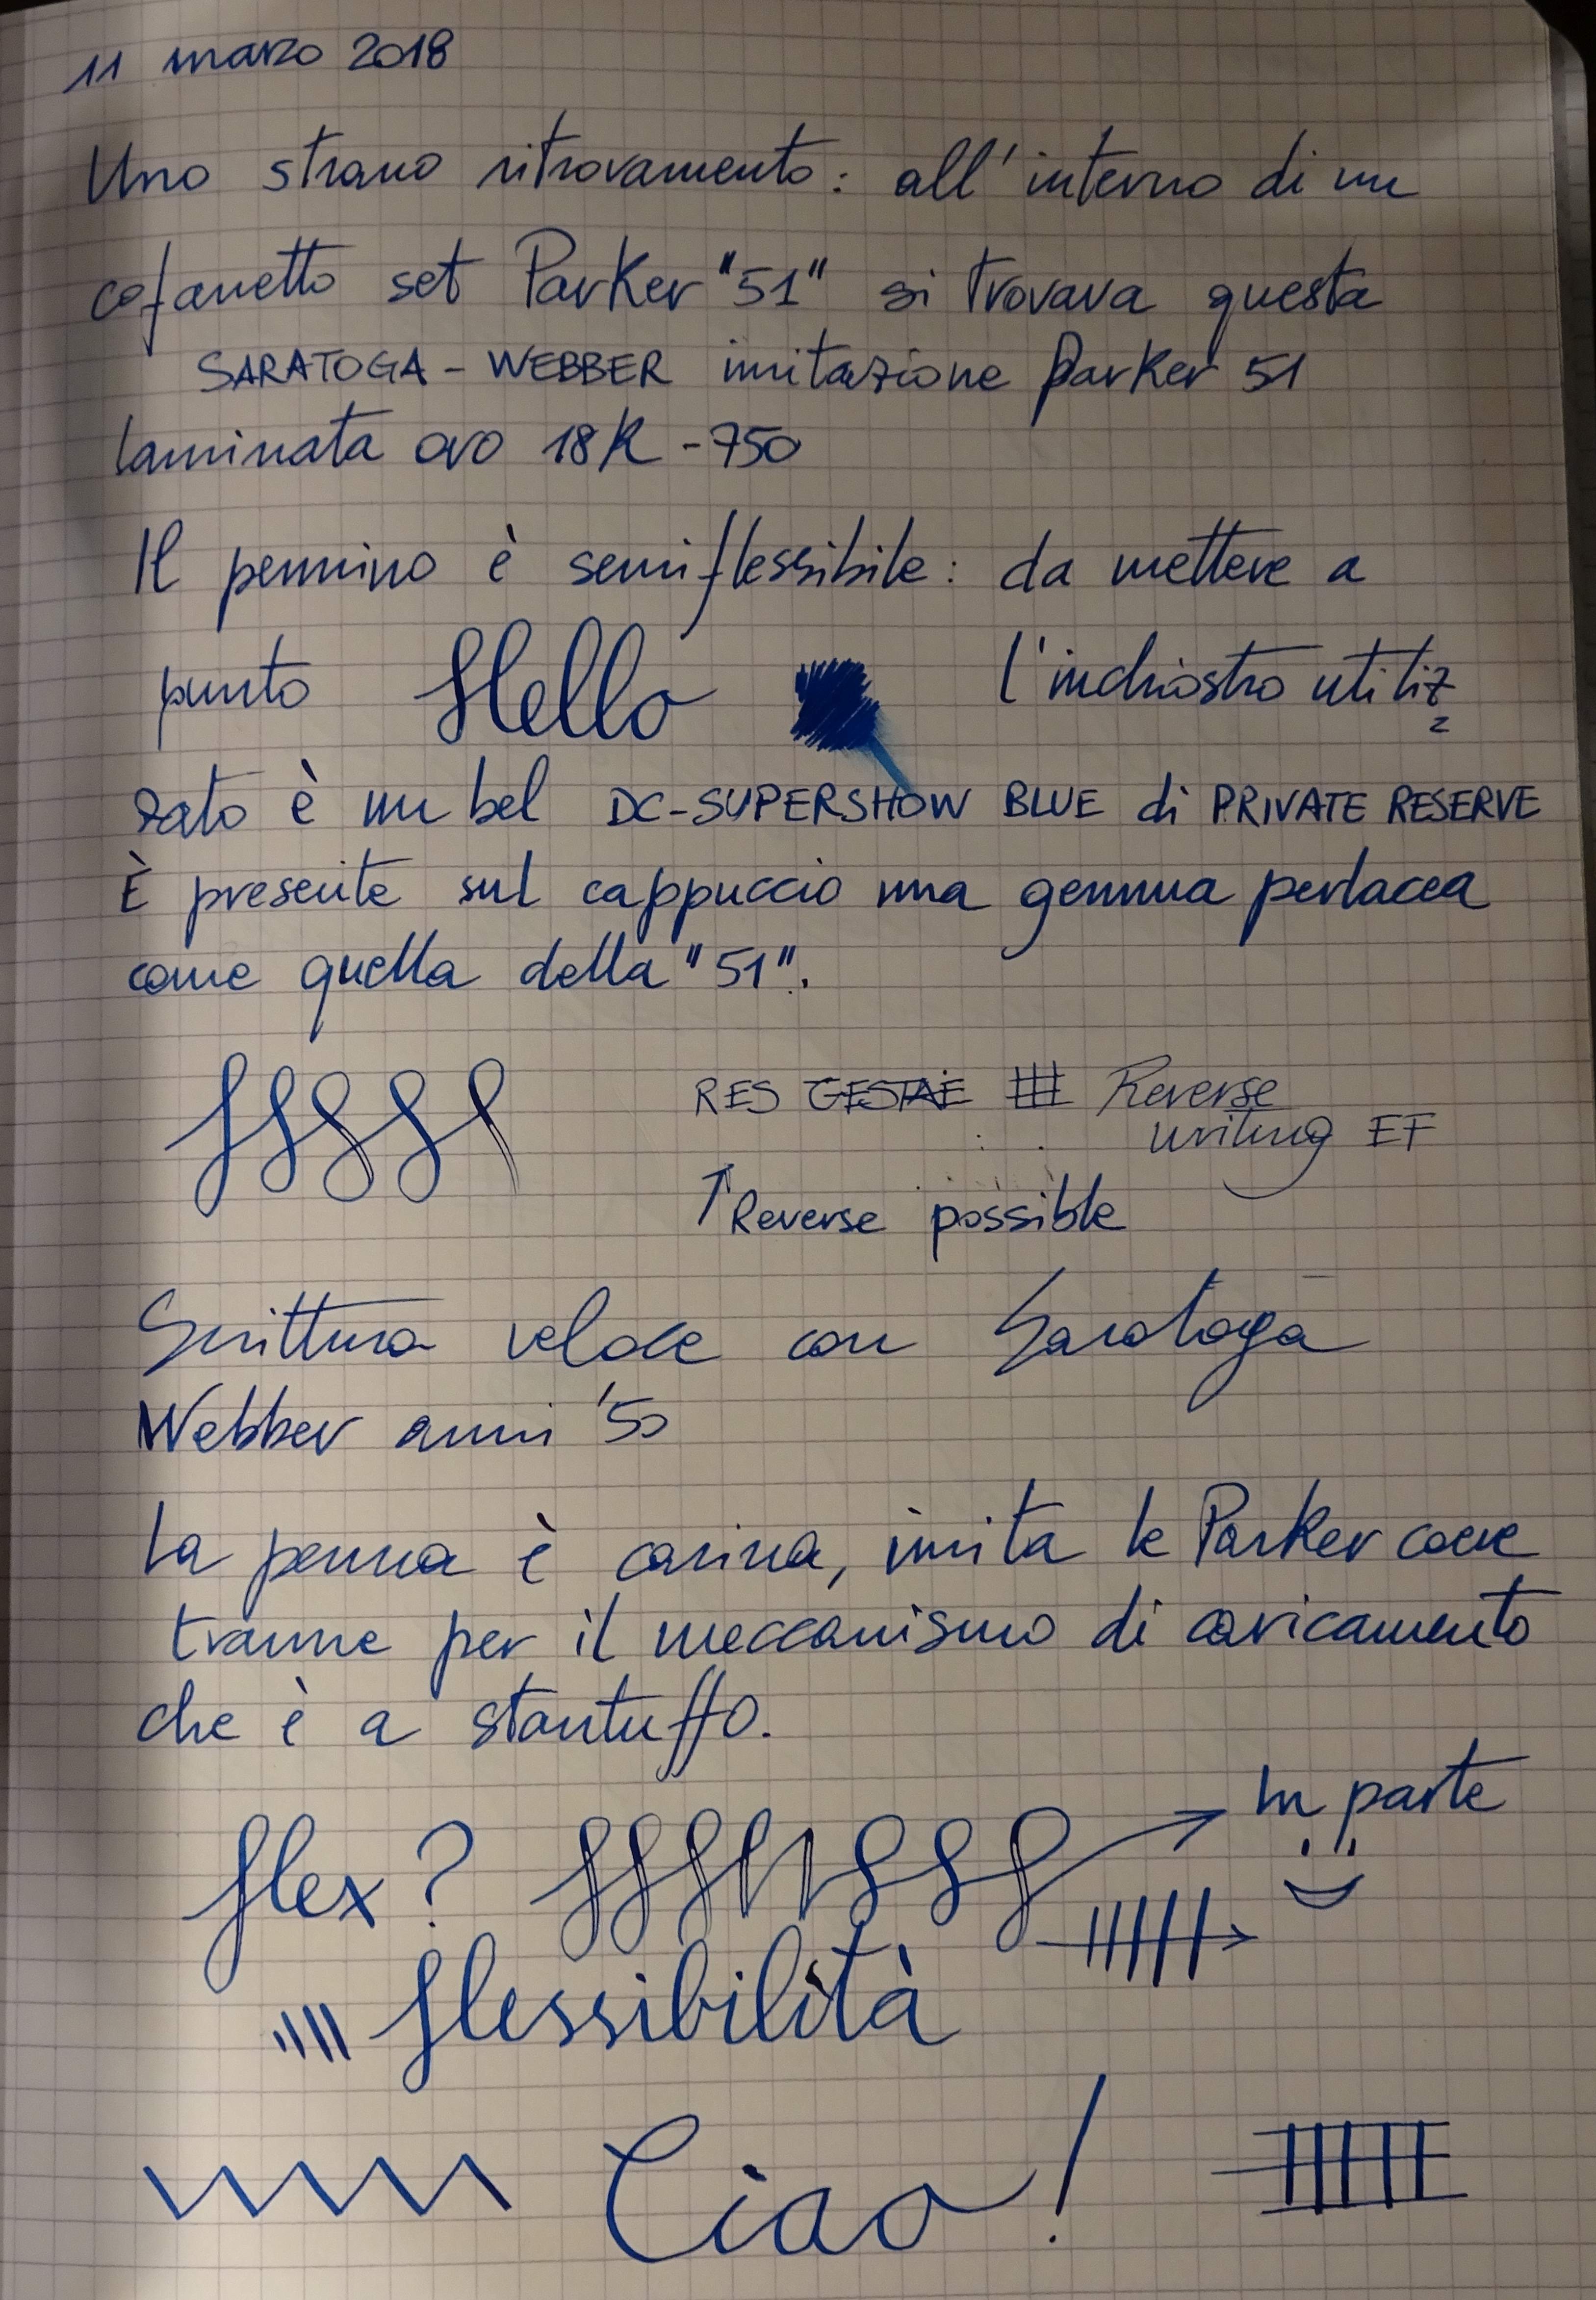 11 marzo 2018
Uno strano ritrovamento: all'interno di un
cofanetto set Parker "51" si trovava questa
SARATOGA - WEBBER imitazione Parker 51
laminata oro 18K - 750
Il pennino è semiflessibile: da mettere a
punto Hello l'inchiostro utiliz
zato è un bel DC-SUPERSHOW BLUE di PRIVATE RESERVE
È presente sul cappuccio una gemma perlacea
come quella della "51".
RES GESTAE Reverse
writing EF
↑ Reverse possible
Scrittura veloce con Saratoga
Webber anni '50
La penna è carina, imita le Parker coeve
tranne per il meccanismo di caricamento
che è a stantuffo.
In parte
flex?
flessibilità
Ciao!